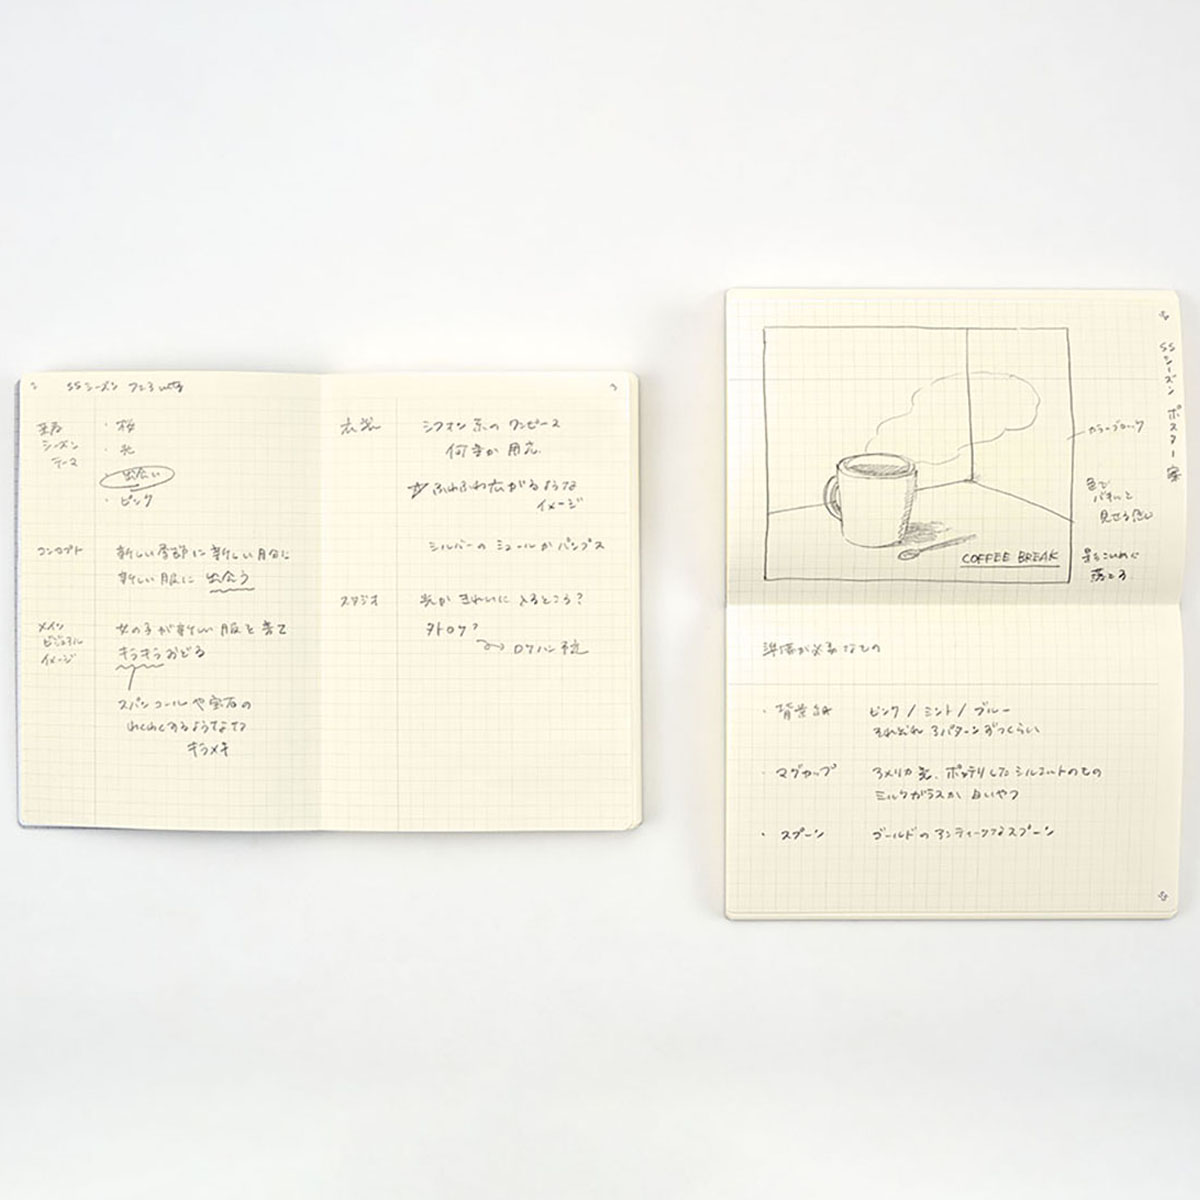 2
SSシーズン
3
シーズン
テーマ
・桜
・光
・出会い
・ピンク
コンセプト
新しい季節に新しい自分に
新しい服に 出会う
メイン
ビジュアル
イメージ
女の子が新しい服を着て
キラキラおどる
スパンコールや宝石の
わくわくするような
キラメキ
衣装
シフォン系のワンピース
何着か用意
☆ふわふわ広がるような
イメージ
シルバーのミュールかパンプス
スタジオ
光がきれいに入るところ?
外ロケ?
ロケハン
SSシーズン ポスター案
カラーブロック
色で
パキッと
見せる感じ
影もきれいに
落とす
COFFEE BREAK
準備が必要なもの
・背景紙
ピンク / ミント / ブルー
それぞれ3パターンずつくらい
・マグカップ
アメリカ製、ポッテリしたシルエットのもの
ミルクガラスか白いやつ
・スプーン
ゴールドのアンティークなスプーン